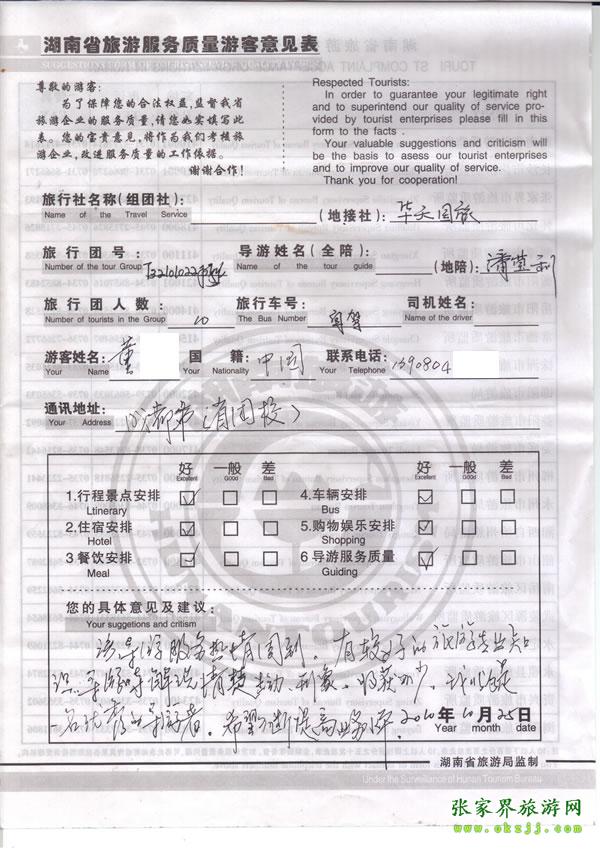 湖南省旅游服务质量游客意见表
尊敬的游客:
为了保障您的合法权益,监督我省
旅游企业的服务质量,请您如实填写此
表。您的宝贵意见,将作为我们考核旅
游企业,改进服务质量的工作依据。
谢谢合作!
Respected Tourists:
In order to guarantee your legitimate right
and to superintend our quality of service pro-
vided by tourist enterprises please fill in this
form to the facts .
Your valuable suggestions and criticism will
be the basis to asess our tourist enterprises
and to improve our quality of service.
Thank you for cooperation!
旅行社名称(组团社): (地接社): 华天国旅
Name of the Travel Service
旅行团号: 导游姓名(全陪): (地陪):
Number of the tour Group Name of the tour guide
旅行团人数: 10 旅行车号: 司机姓名:
Number of tourists in the Group The Bus Number Name of the driver
游客姓名: 董 国籍: 中国 联系电话: 1390804
Your Name Your Nationality Your Telephone
通讯地址: 成都市
Your Address
好 一般 差 好 一般 差
Excellent Good Bad Excellent Good Bad
1.行程景点安排 4.车辆安排
Ltinerary Bus
2.住宿安排 5.购物娱乐安排
Hotel Shopping
3 餐饮安排 6 导游服务质量
Meal Guiding
您的具体意见及建议:
Your suggetions and critism
该导游服务热情周到,有较好的旅游专业知
识,讲解清楚生动、形象。收获不少,
一名优秀的导游者。希望不断提高业务水平。
2010年10月25日
Year month date
湖南省旅游局监制
Under the Surveillance of Hunan Tourism Bureau
张家界旅游网
www.okzjj.com